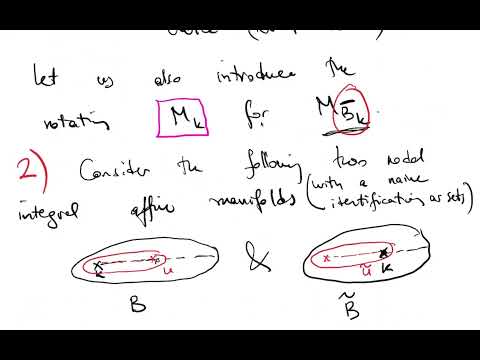 Let us also introduce the
notation M_k for M_{B̄_k}
2) Consider the following two nodal
integral affine manifolds (with a naive
identification as sets)
& 
k u ũ k
B B̃